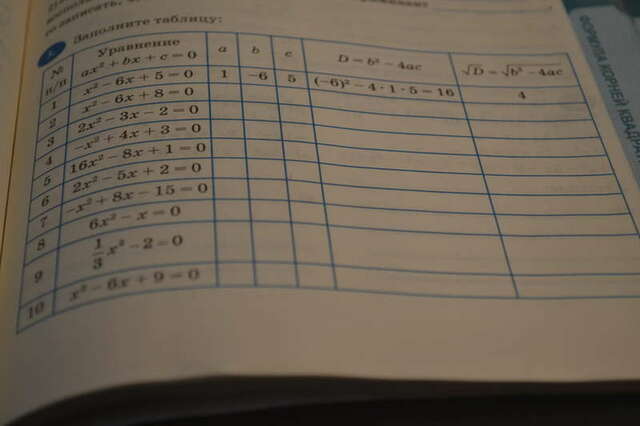 Заполните таблицу:
№ п/п Уравнение ax² + bx + c = 0 a b c D = b² − 4ac √D = √b² − 4ac
1 x² − 6x + 5 = 0 1 −6 5 (−6)² − 4 · 1 · 5 = 16 4
2 x² − 6x + 8 = 0
3 2x² − 3x − 2 = 0
4 −x² + 4x + 3 = 0
5 16x² − 8x + 1 = 0
6 2x² − 5x + 2 = 0
7 −x² + 8x − 15 = 0
8 6x² − x = 0
9 1/3 x² − 2 = 0
10 x² − 6x + 9 = 0
ФОРМУЛА КОРНЕЙ